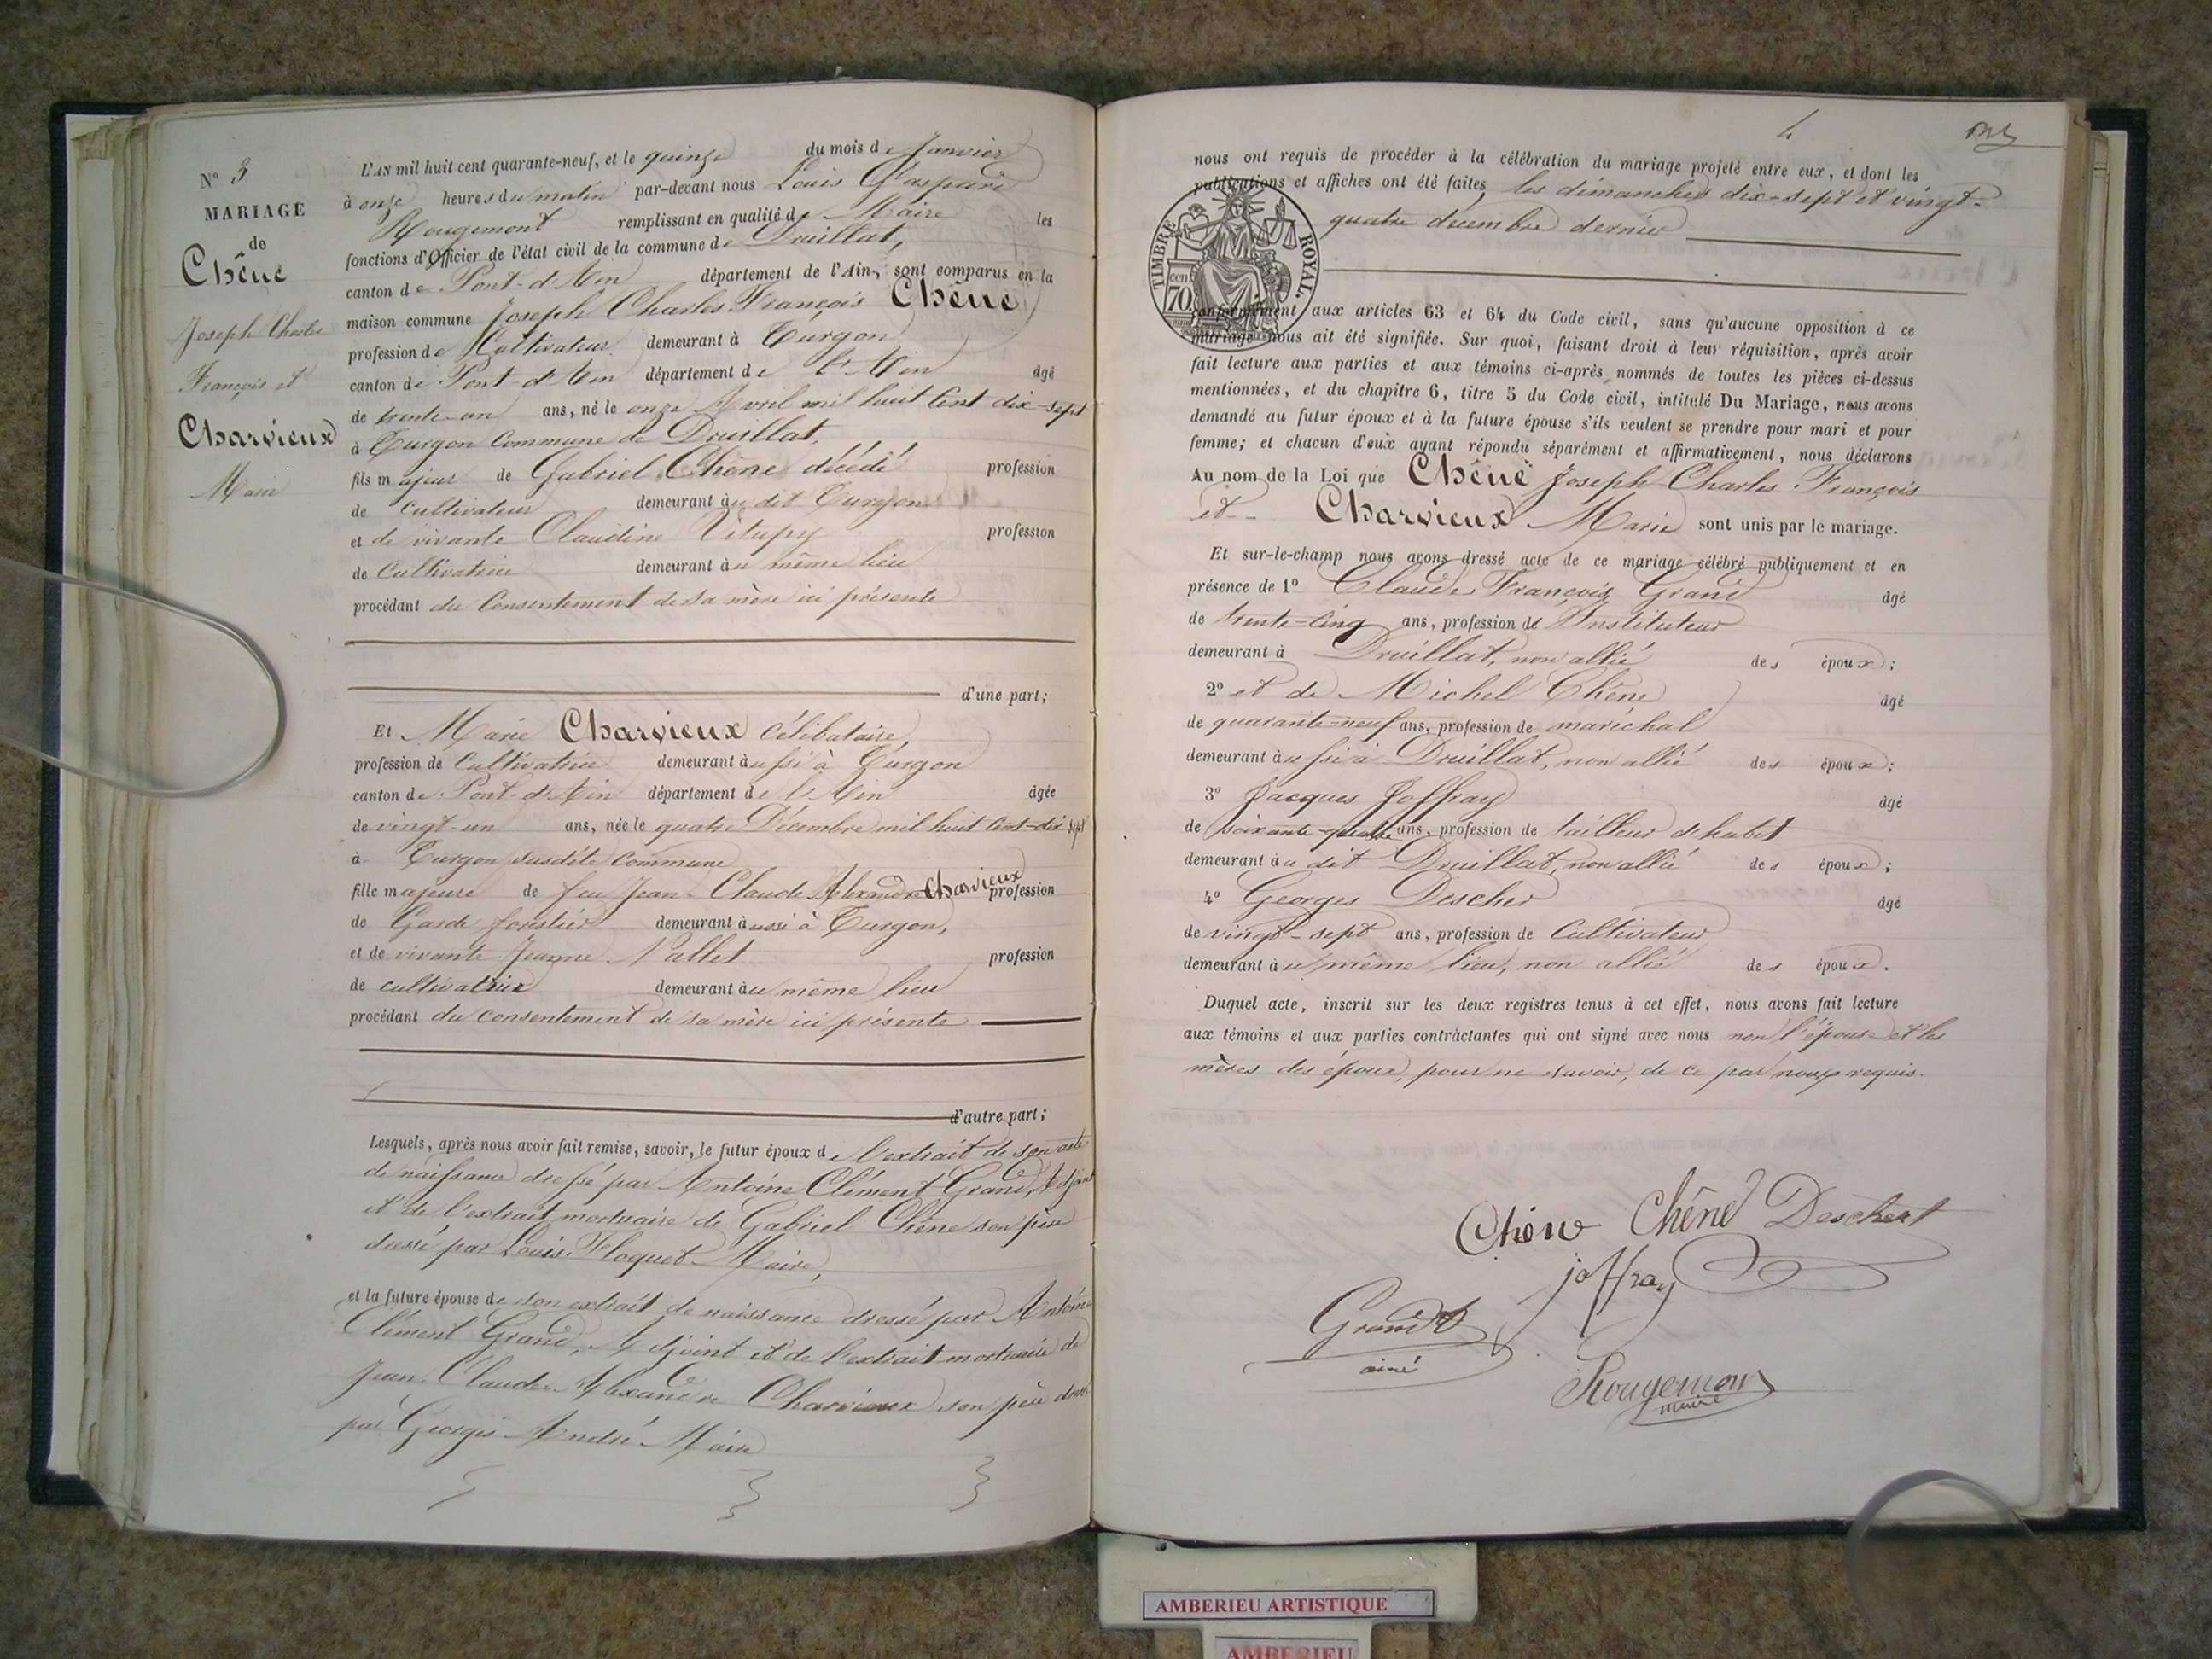 N° 3
MARIAGE
de
Chêne
Joseph Charles
François et
Charvieux
Marie
L'AN mil huit cent quarante-neuf, et le quinze du mois de Janvier
à onze heures du matin par-devant nous Louis Gaspard
Rougemont remplissant en qualité de Maire les
fonctions d'Officier de l'état civil de la commune de Druillat,
canton de Pont-d'Ain département de l'Ain, sont comparus en la
maison commune Joseph Charles François Chêne
profession de Cultivateur demeurant à Turgon
canton de Pont-d'Ain département de l'Ain âgé
de trente-un ans, né le onze Avril mil huit cent dix-sept
à Turgon Commune de Druillat,
fils majeur de Gabriel Chêne décédé profession
de cultivateur demeurant au dit Turgon
et de vivante Claudine profession
de Cultivatrice demeurant au même lieu
procédant du Consentement de sa mère ici présente
d'une part;
Et Marie Charvieux Célibataire,
profession de Cultivatrice demeurant aussi à Turgon
canton de Pont-d'Ain département de l'Ain âgée
de vingt-un ans, née le quatre Décembre mil huit cent-dix sept
à Turgon susdite Commune
fille majeure de feu Jean-Claude Alexandre Charvieux profession
de Garde forestier demeurant aussi à Turgon,
et de vivante Jeanne Pallet profession
de cultivatrice demeurant au même lieu
procédant du consentement de sa mère ici présente
d'autre part;
Lesquels, après nous avoir fait remise, savoir, le futur époux de l'extrait de son acte
de naissance dressé par Antoine Clément Grand, Adjoint
et de l'extrait mortuaire de Gabriel Chêne son père
dressé par Louis Floquet Maire,
et la future épouse de son extrait de naissance dressé par Antoine
Clément Grand, Adjoint et de l'extrait mortuaire de
Jean-Claude Alexandre Charvieux son père dressé
par Georges André Maire
4
nous ont requis de procéder à la célébration du mariage projeté entre eux, et dont les
publications et affiches ont été faites, les dimanches dix-sept et vingt-
quatre décembre dernier
TIMBRE ROYAL.
cen
70
conformément aux articles 63 et 64 du Code civil, sans qu'aucune opposition à ce
mariage nous ait été signifiée. Sur quoi, faisant droit à leur réquisition, après avoir
fait lecture aux parties et aux témoins ci-après nommés de toutes les pièces ci-dessus
mentionnées, et du chapitre 6, titre 5 du Code civil, intitulé Du Mariage, nous avons
demandé au futur époux et à la future épouse s'ils veulent se prendre pour mari et pour
femme; et chacun d'eux ayant répondu séparément et affirmativement, nous déclarons
Au nom de la Loi que Chêne Joseph Charles François
et Charvieux Marie sont unis par le mariage.
Et sur-le-champ nous avons dressé acte de ce mariage célébré publiquement et en
présence de 1° Claude François Grand âgé
de trente-cinq ans, profession de Instituteur
demeurant à Druillat, non allié des époux;
2° et de Michel Chêne âgé
de quarante-neuf ans, profession de maréchal
demeurant aussi à Druillat, non allié des époux;
3° Jacques Joffray âgé
de soixante-quatre ans, profession de tailleur d'habit
demeurant au dit Druillat, non allié des époux;
4° Georges Descher âgé
de vingt-sept ans, profession de Cultivateur
demeurant au même lieu, non allié des époux.
Duquel acte, inscrit sur les deux registres tenus à cet effet, nous avons fait lecture
aux témoins et aux parties contractantes qui ont signé avec nous non l'épouse et les
mères des époux, pour ne savoir, de ce par nous requis.
Chêne Chêne Deschert
joffray
Grand
ainé
Rougemont
maire
AMBERIEU ARTISTIQUE
AMBERIEU